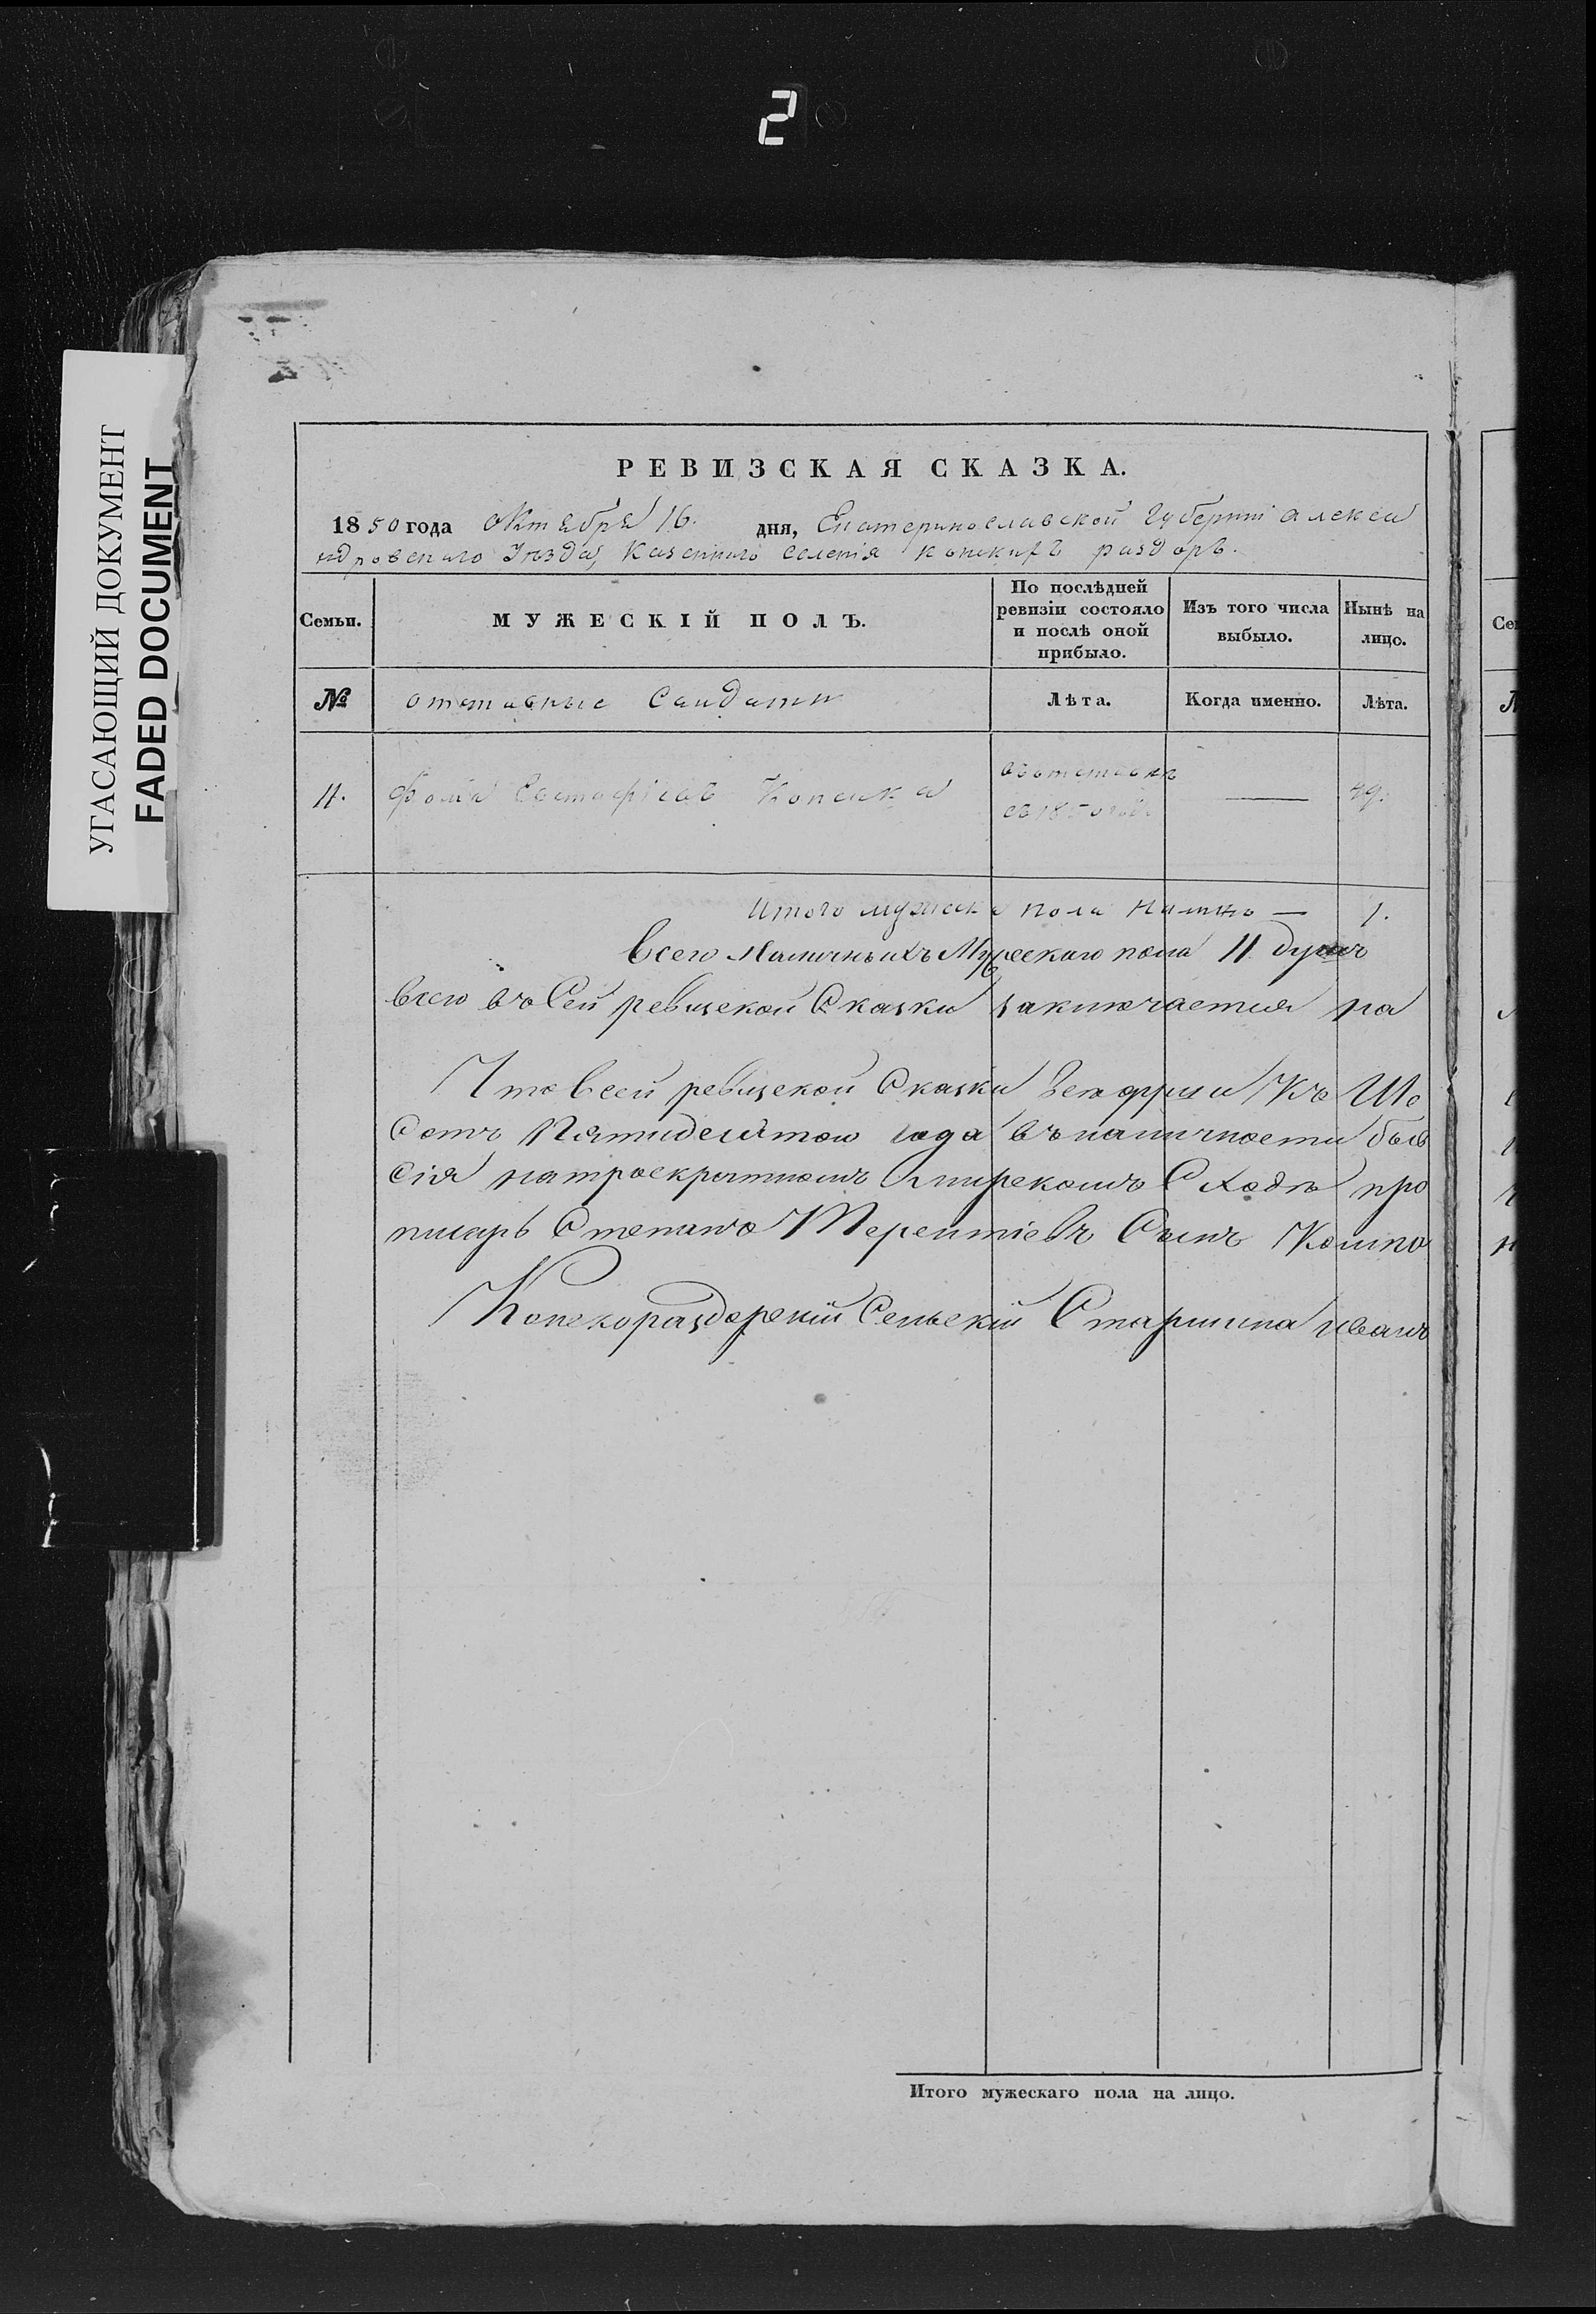 2
УГАСАЮЩИЙ ДОКУМЕНТ
FADED DOCUMENT
РЕВИЗСКАЯ СКАЗКА.
1850 года Октября 16. дня, Екатеринославской Губерніи Алекса
ндровскаго Уѣзда, Казеннаго селенія конскихъ раздоръ.
Семьи.
МУЖЕСКІЙ ПОЛЪ.
По послѣдней ревизіи состояло и послѣ оной прибыло.
Изъ того числа выбыло.
Нынѣ на лицо.
№
отставные Салдаты
Лѣта.
Когда именно.
Лѣта.
11.
Фома Евстафіевъ
въ отставкѣ
съ 1850 года
49.
Итого мужеска пола налицо — 1.
Всего Наличныхъ Мужескаго пола 11 душъ
всего въ Сей ревизской Сказки заключается на
Что Всей ревизской Сказки Къ
Сотъ Пятидесятою года въ наличности
сія натроекратномъ мирскомъ Сходѣ про
писарь Степанъ Терентіевъ Сынъ
Конскораздорскій Сельскій Старшина иванъ
Итого мужескаго пола на лицо.